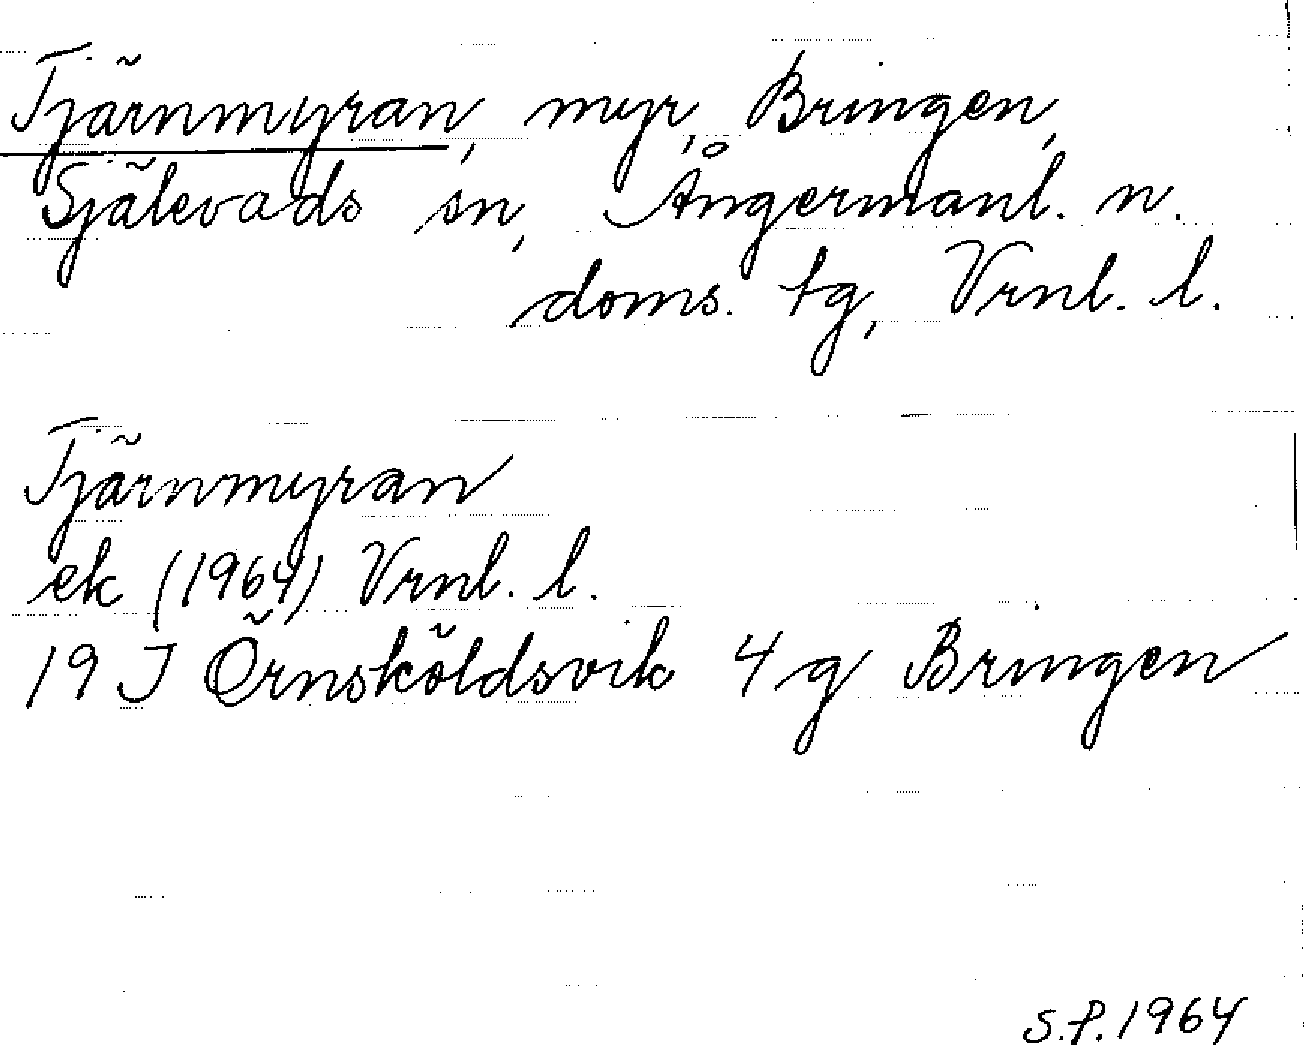 Tjärnmyran, myr, Bringen,
Själevads sn, Ångermanl. n.
doms. tg, Vrnl. l.
Tjärnmyran
ek (1964) Vrnl. l.
19 J Örnsköldsvik 4 g Bringen
S.P. 1964